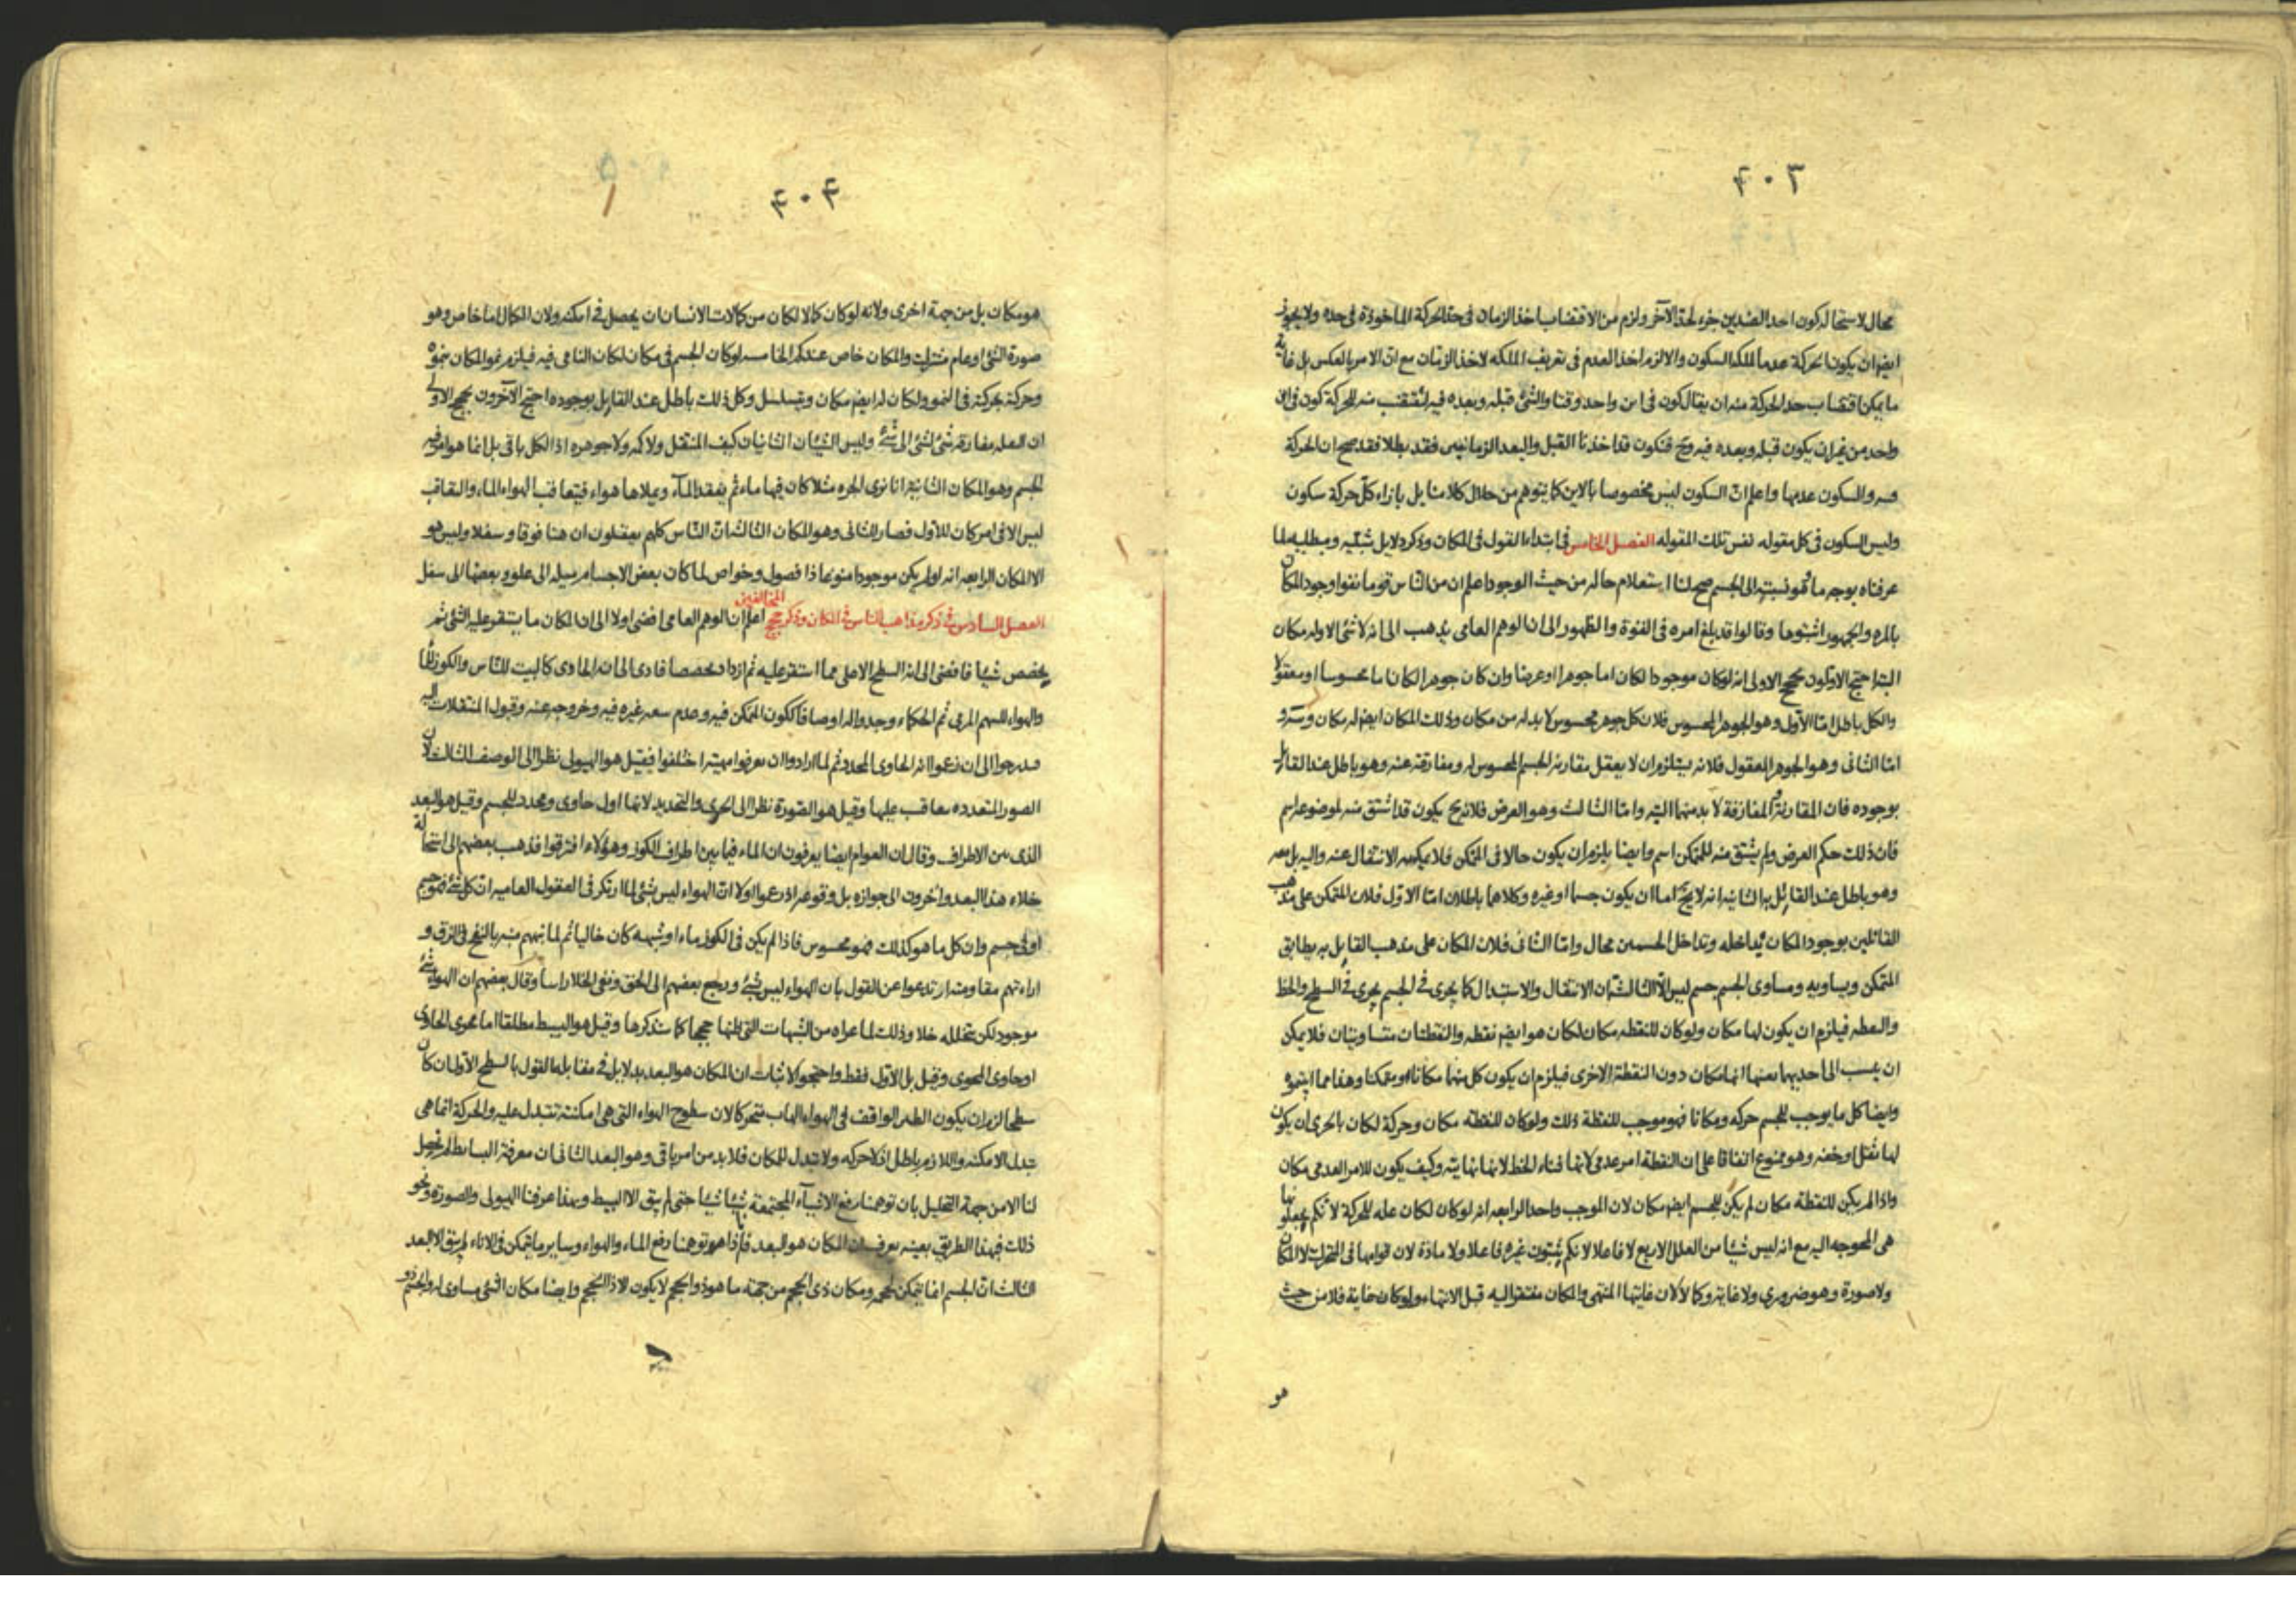 ٤٠٣
محال لاستحالة كون احد الضدين جزء لحد الآخر ولزم من الاقتضاب اخذ الزمان فى حد الحركة الماخوذة فى حده ولا يجوز
ايضا ان يكون الحركة عدما لملكة السكون والا لزم اخذ العدم فى تعريف الملكة لاخذ الزمان مع ان الامر بالعكس بل غاية
ما يمكن اقتضاب حد الحركة منه ان يقال كون فى اين واحد وقتا والشئ قبله وبعده فيه فتقتضب منه للحركة كون فى اين
واحد من غير ان يكون قبله وبعده فيه وح فتكون قد اخذنا القبل والبعد الزمانيين فقد بطلا فقد صح ان الحركة
والسكون عدمها واعلم ان السكون ليس مخصوصا بالاين كما يتوهم من خلال كلامنا بل بازاء كل حركة سكون
وليس السكون فى كل مقوله نفس تلك المقوله الفصل الخامس فى ابتداء القول فى المكان وذكر دلايل مثبتيه ومبطليه لما
عرفناه بوجه ما نسبته الى الجسم صح لنا استعلام حاله من حيث الوجود اعلم ان من الناس قوما نفوا وجود المكان
بالمره والجمهور اثبتوها وقالوا قد بلغ امره فى القوة والظهور الى ان الوهم العامى يذهب الى انه لا شئ الا وله مكان
البته احتج الاولون بحجج الاولى انه لو كان موجودا لكان اما جوهرا او عرضا وان كان جوهرا لكان اما محسوسا او معقولا
والكل باطل اما الاول وهو الجوهر المحسوس فلان كل جوهر محسوس لا بد له من مكان وذلك المكان ايضا له مكان
اما الثانى وهو الجوهر المعقول فلانه يستلزم ان لا يعقل مقارنة الجسم المحسوس له ومفارقته عنه وهو باطل عند القايل
بوجوده فان المقارنة والمفارقة لا بد منهما البته واما الثالث وهو العرض فلانه ح يكون قد اشتق منه لموضوعه اسم
فان ذلك حكم العرض ولم يشتق منه للمتمكن اسم وايضا يلزم ان يكون حالا فى المتمكن فلا يمكنه الانتقال عنه واليه بل معه
وهو باطل عند القائل به الثانيه انه لا يخ اما ان يكون جسما او غيره وكلاهما باطلان اما الاول فلان المتمكن على مذهب
القائلين بوجود المكان يداخله وتداخل الجسمين محال واما الثانى فلان المكان على مذهب القايل به يطابق
المتمكن ويساويه ومساوى الجسم جسم ليس الا الثالثة ان الانتقال والاستبدال كما يجرى فى الجسم يجرى فى السطح والخط
والنقطه فيلزم ان يكون لها مكان ولو كان للنقطه مكان لكان هو ايضا نقطه والنقطتان متساويتان فلا يمكن
ان ينسب الى احديهما بعينها انها مكان دون النقطة الاخرى فيلزم ان يكون كل منهما مكانا ومتمكنا وهذا مما
وايضا كل ما يوجب للجسم حركه ومكانا فهو موجب للنقطة ذلك ولو كان للنقطه مكان وحركة لكان بالحرى ان يكون
لها ثقل وخفه وهو ممنوع اتفاقا على ان النقطة امر عدمى لانها فناء الخط لانها نهايته وكيف يكون للامر العدمى مكان
واذا لم يكن للنقطة مكان لم يكن للجسم ايضا مكان لان الموجب واحد الرابعه انه لو كان لكان علة للحركة لانكم تجعلونها
هى المحوجه اليه مع انه ليس شيئا من العلل الاربع لا فاعلا لانكم تثبتون غيره فاعلا ولا مادة لان قوامها فى المتحرك لا المكان
ولا صورة وهو ضرورى ولا غاية وكمالا لان غايتها المنتهى والمكان مفتقر اليه قبل الانتهاء ولو كان غاية فلا من حيث
هو
٤٠٤
هو مكان بل من جهة اخرى ولانه لو كان كمالا لكان من كمالات الانسان ان يحصل فى امكنه ولان الكمال اما خاص وهو
صورة الشئ او عام مشترك والمكان خاص عندكم الخامسه لو كان الجسم فى مكان لكان النامى فيه فيلزم نمو المكان بنموه
وحركته بحركته فى النمو ولكان له ايضا مكان ويتسلسل وكل ذلك باطل عند القايل بوجوده احتج الآخرون بحجج الاولى
ان النقله مفارقه شئ لشئ الى شئ وليس الشيئان الثانيان كيف المنتقل ولا كمه ولا جوهره اذ الكل باقى بل انما هو امر فيه
الجسم وهو المكان الثانيه انا نرى الجره مثلا كان فيها ماء ثم يفقد الماء ويملاها هواء فيتعاقب الهواء الماء والتعاقب
ليس الا فى امر كان للاول فصار للثانى وهو المكان الثالثه ان الناس كلهم يعقلون ان هنا فوقا وسفلا وليس هو
الا المكان الرابعه انه لو لم يكن موجودا متنوعا ذا فصول وخواص لما كان بعض الاجسام ميله الى علو وبعضها الى سفل
الفصل السادس فى ذكر مذاهب الناس فى المكان وذكر حجج المخالفين اعلم ان الوهم العامى افضى اولا الى ان المكان ما يستقر عليه الشئ ثم
يخصص شيئا فافضى الى انه السطح الاعلى مما استقر عليه ثم ازداد تخصصا فادى الى انه الحاوى كالبيت للناس والكوز للماء
والهواء للسهم المرمى ثم الحكماء وجدوا له اوصافا ككون المتمكن فيه وعدم سعه غيره فيه وخروجه عنه وقبول المنتقلات اليه
فتدرجوا الى ان زعموا انه الحاوى المحدد ثم لما ارادوا ان يعرفوا مهيته اختلفوا فقيل هو الهيولى نظرا الى الوصف الثالث لان
الصور المتعدده تتعاقب عليها وقيل هو الصورة نظرا الى الحوى والتحديد لانها اول حاوى ومحدد للجسم وقيل هو البعد
الذى بين الاطراف وقال ان العوام ايضا يعرفون ان الماء فيما بين اطراف الكوز وهؤلاء افترقوا فذهب بعضهم الى استحالة
خلاء هذا البعد وآخرون الى جوازه بل وقوعه اذ زعموا اولا ان الهواء ليس بشئ لما ارتكز فى العقول العاميه ان كل شئ فهو جسم
او فى جسم وان كل ما هو كذلك فهو محسوس فاذا لم يكن فى الكوز ماء او شبهه كان خاليا ثم لما نبههم منبه بالنفخ فى الزق و
اراءتهم مقاومته ارتدعوا عن القول بان الهواء ليس بشئ ورجع بعضهم الى الحق ونفى الخلا راسا وقال بعضهم ان الهواء شئ
موجود لكن يتخلله خلا وذلك لما عراه من الشبهات التى ظنها حججا كما سنذكرها وقيل هو البسيط مطلقا اما محوى الحاوى
او حاوى المحوى وقيل بل الاول فقط واحتجوا لاثبات ان المكان هو البعد بدلايل فى مقابله القول بالسطح الاول ان كان
سطحا لزم ان يكون الطير الواقف فى الهواء الهاب متحركا لان سطوح الهواء التى هى امكنته تتبدل عليه والحركة انما هى
تبدل الامكنه واللازم باطل اذ لا حركه ولا تبدل للمكان فلا بد من امر باقى وهو البعد الثانى ان معرفة البسايط لم تحصل
لنا الا من جهة التحليل بان توهمنا رفع الاشياء المجتمعة شيئا شيئا حتى لم يبق الا البسيط وبهذا عرفنا الهيولى والصورة ونحو
ذلك فبهذا الطريق بعينه يعرف ان المكان هو البعد فانا اذا توهمنا رفع الماء والهواء وساير ما يتمكن فى الاناء لم يبق الا البعد
الثالث ان الجسم انما يتمكن بحجمه ومكان ذى الحجم من جهة ما هو ذو الحجم لا يكون الا ذا الحجم وايضا مكان الشئ مساوى له والجسم ذو